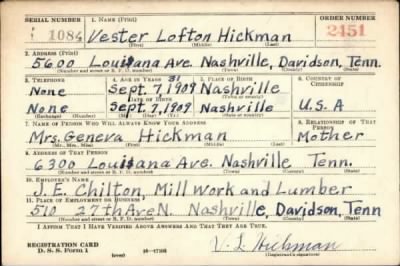 SERIAL NUMBER 1. NAME (Print) ORDER NUMBER
1084 Vester Lofton Hickman 2451
(First) (Middle) (Last)
2. ADDRESS (Print)
5600 Louisana Ave. Nashville, Davidson, Tenn.
(Number and street or R. F. D. number) (Town) (County) (State)
3. TELEPHONE 4. AGE IN YEARS 5. PLACE OF BIRTH 6. COUNTRY OF CITIZENSHIP
31
None Sept. 7, 1909 Nashville
DATE OF BIRTH
None Sept. 7, 1909 Nashville U.S.A
(Exchange) (Number) (Mo.) (Day) (Yr.) (State or country)
7. NAME OF PERSON WHO WILL ALWAYS KNOW YOUR ADDRESS 8. RELATIONSHIP OF THAT PERSON
Mrs. Geneva Hickman Mother
(Mr., Mrs., Miss) (First) (Middle) (Last)
9. ADDRESS OF THAT PERSON
6300 Louisana Ave. Nashville Tenn.
(Number and street or R. F. D. number) (Town) (County) (State)
10. EMPLOYER'S NAME
J. E. Chilton, Mill Work and Lumber
11. PLACE OF EMPLOYMENT OR BUSINESS
510 27th Ave N. Nashville, Davidson, Tenn
(Number and street or R. F. D. number) (Town) (County) (State)
I AFFIRM THAT I HAVE VERIFIED ABOVE ANSWERS AND THAT THEY ARE TRUE.
REGISTRATION CARD
D. S. S. Form 1 (over) 16-17105 V. L. Hickman
(Registrant's signature)